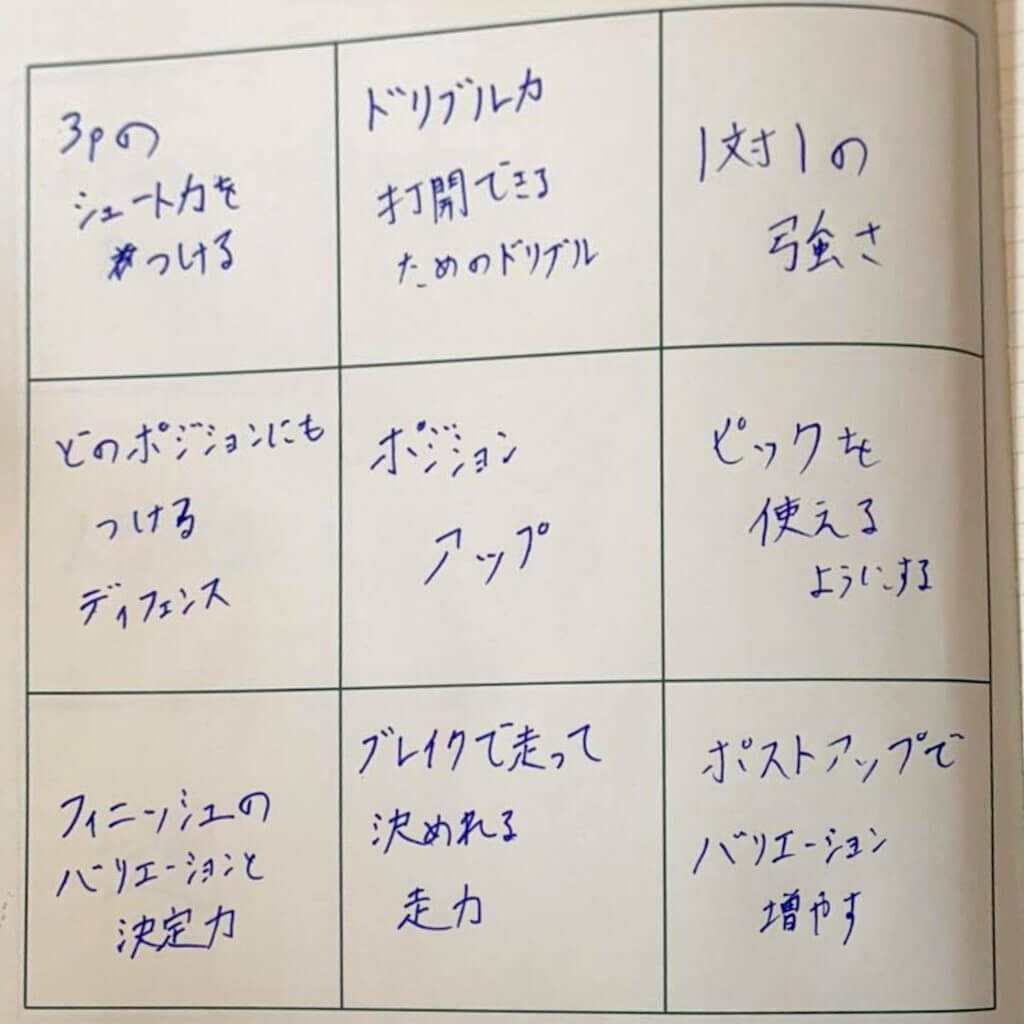 3pの
シュート力を
つける
ドリブル力
打開できる
ためのドリブル
1対1の
強さ
どのポジションにも
つける
ディフェンス
ポジション
アップ
ピックを
使える
ようにする
フィニッシュの
バリエーションと
決定力
ブレイクで走って
決めれる
走力
ポストアップで
バリエーション
増やす